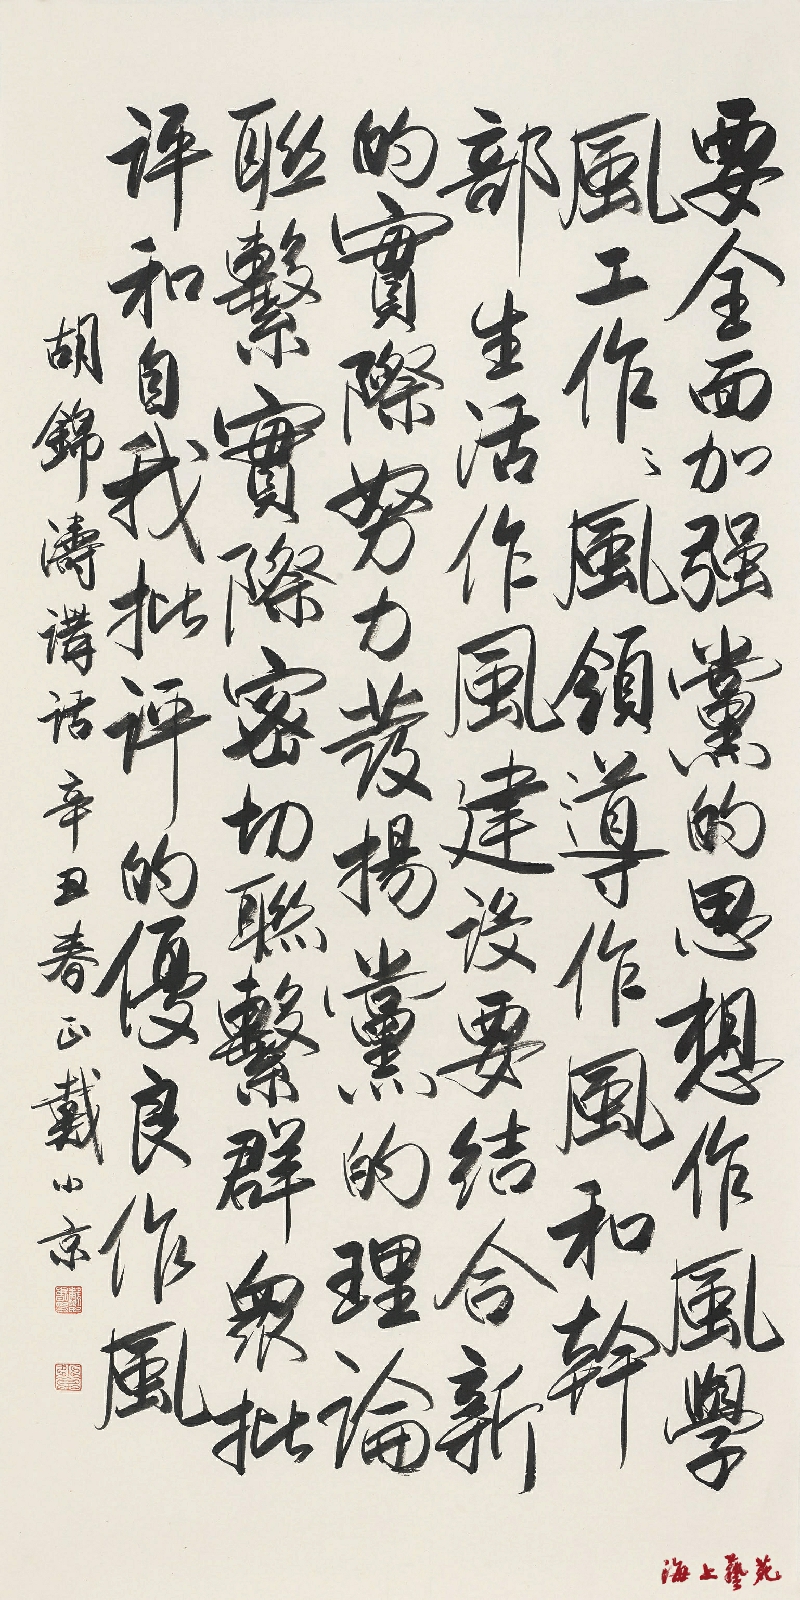 要全面加强黨的思想作風學
風工作〻風領導作風和幹
部生活作風建设要结合新
的實際努力發揚黨的理論
聯繫實際密切聯繫群衆批
评和自我批评的優良作風
胡錦濤講话辛丑春正戴小京
海上藝苑